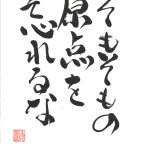 そもそもの
原点を
忘れるな